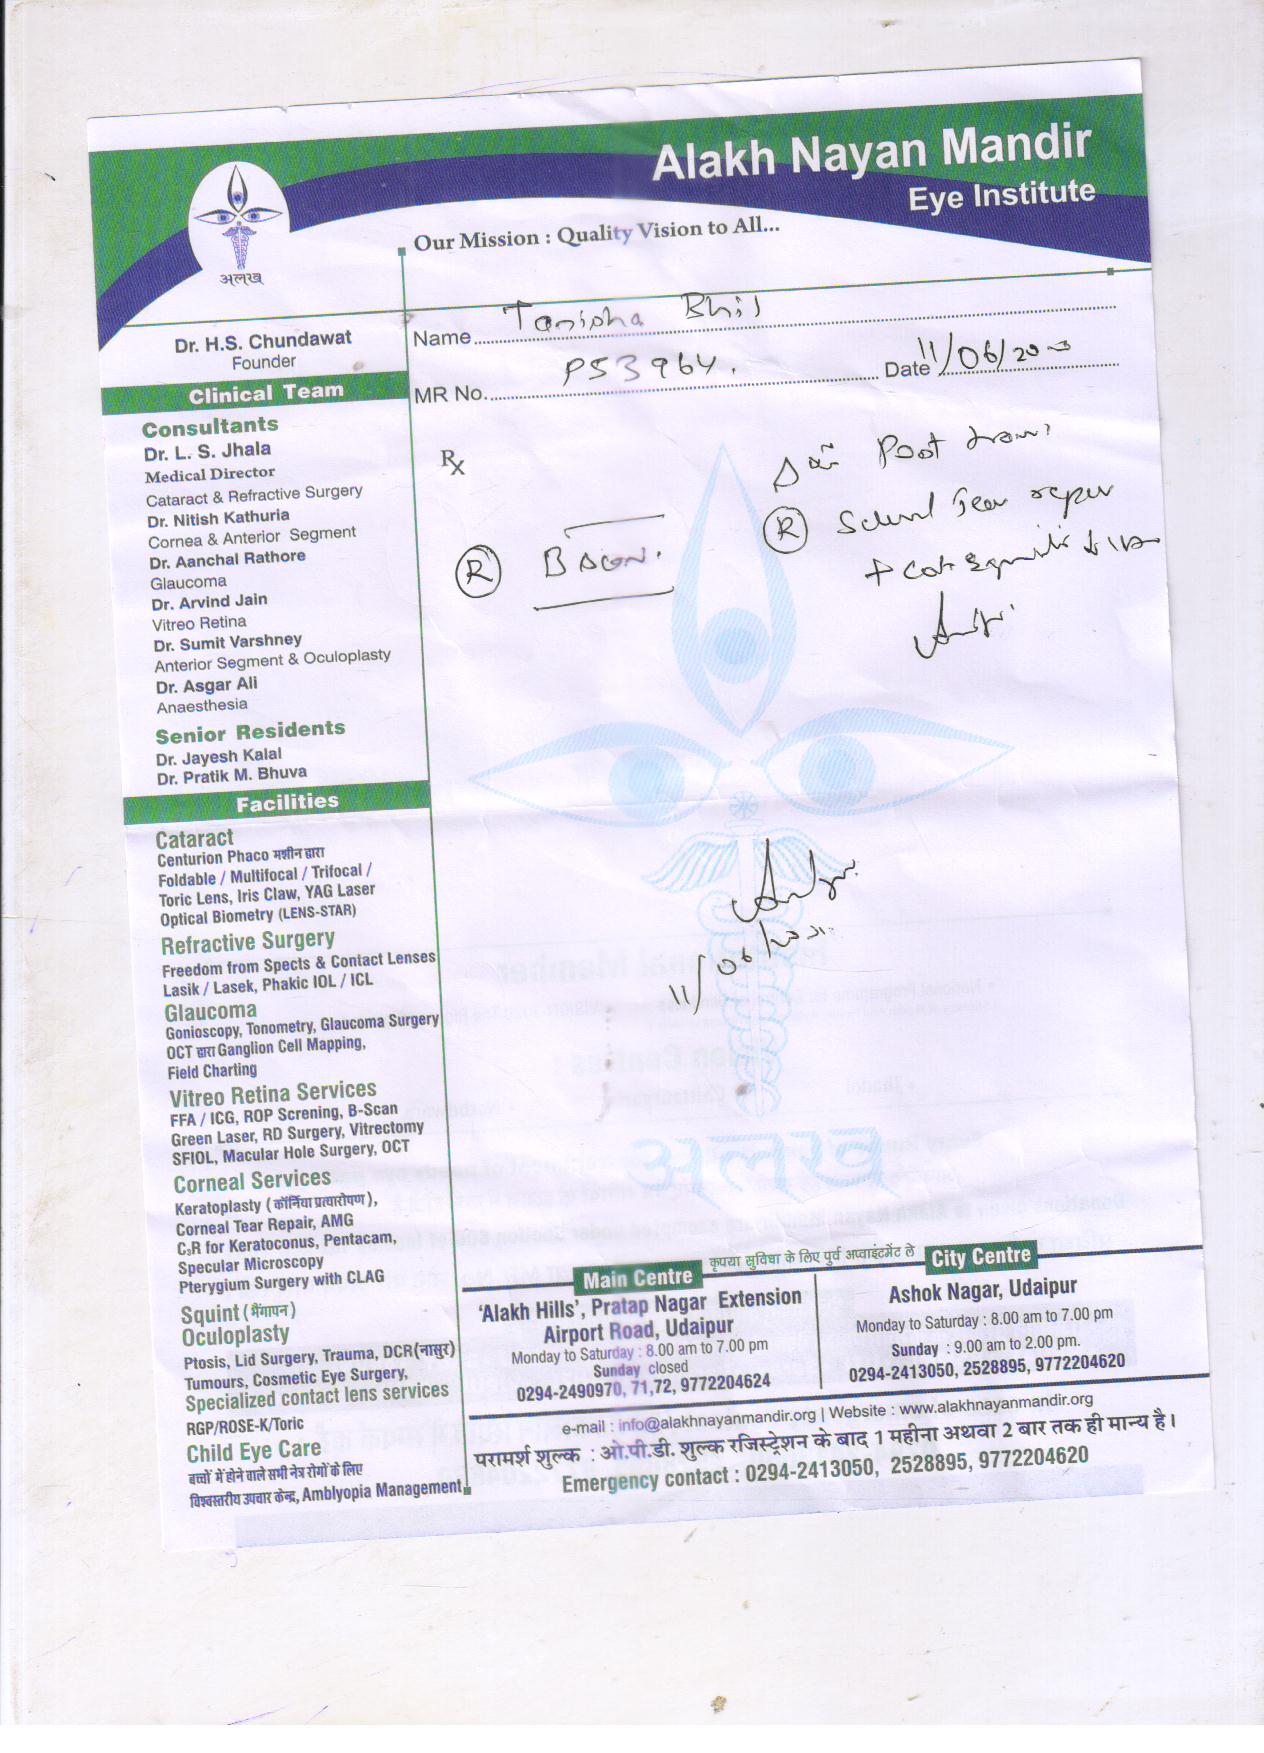 Alakh Nayan Mandir
Eye Institute
Our Mission : Quality Vision to All...
अलख
Name Tanisha Bhil
MR No. P53964.
Date 11/06/20
Dr. H.S. Chundawat
Founder
Clinical Team
Consultants
Dr. L. S. Jhala
Medical Director
Cataract & Refractive Surgery
Dr. Nitish Kathuria
Cornea & Anterior Segment
Dr. Aanchal Rathore
Glaucoma
Dr. Arvind Jain
Vitreo Retina
Dr. Sumit Varshney
Anterior Segment & Oculoplasty
Dr. Asgar Ali
Anaesthesia
Senior Residents
Dr. Jayesh Kalal
Dr. Pratik M. Bhuva
Facilities
Cataract
Centurion Phaco मशीन द्वारा
Foldable / Multifocal / Trifocal /
Toric Lens, Iris Claw, YAG Laser
Optical Biometry (LENS-STAR)
Refractive Surgery
Freedom from Spects & Contact Lenses
Lasik / Lasek, Phakic IOL / ICL
Glaucoma
Gonioscopy, Tonometry, Glaucoma Surgery
OCT द्वारा Ganglion Cell Mapping,
Field Charting
Vitreo Retina Services
FFA / ICG, ROP Screning, B-Scan
Green Laser, RD Surgery, Vitrectomy
SFIOL, Macular Hole Surgery, OCT
Corneal Services
Keratoplasty (कॉर्निया प्रत्यारोपण),
Corneal Tear Repair, AMG
C₃R for Keratoconus, Pentacam,
Specular Microscopy
Pterygium Surgery with CLAG
Squint (भैंगापन)
Oculoplasty
Ptosis, Lid Surgery, Trauma, DCR(नासुर)
Tumours, Cosmetic Eye Surgery,
Specialized contact lens services
RGP/ROSE-K/Toric
Child Eye Care
बच्चों में होने वाले सभी नेत्र रोगों के लिए
विश्वस्तरीय उपचार केन्द्र, Amblyopia Management
Rx
Post
R Scleral Tear repair
R B Scan.
11/06/20
अलख
कृपया सुविधा के लिए पुर्व अप्वाइंटमेंट ले
Main Centre
'Alakh Hills', Pratap Nagar Extension
Airport Road, Udaipur
Monday to Saturday : 8.00 am to 7.00 pm
Sunday closed
0294-2490970, 71,72, 9772204624
City Centre
Ashok Nagar, Udaipur
Monday to Saturday : 8.00 am to 7.00 pm
Sunday : 9.00 am to 2.00 pm.
0294-2413050, 2528895, 9772204620
e-mail : info@alakhnayanmandir.org | Website : www.alakhnayanmandir.org
परामर्श शुल्क : ओ.पी.डी. शुल्क रजिस्ट्रेशन के बाद 1 महीना अथवा 2 बार तक ही मान्य है।
Emergency contact : 0294-2413050, 2528895, 9772204620